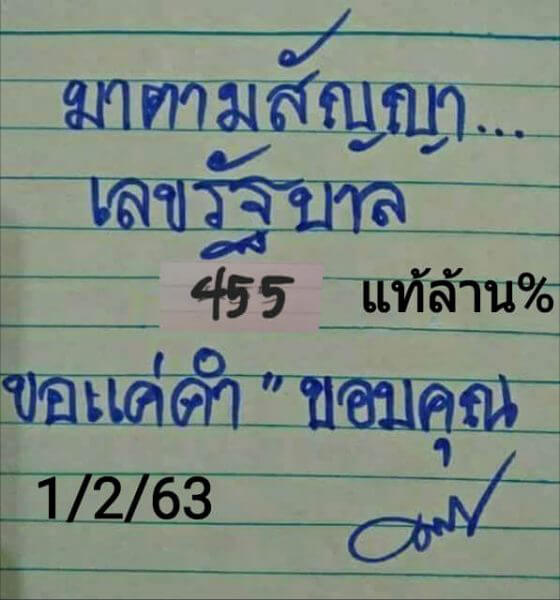 มาตามสัญญา...
เลขรัฐบาล
455 แท้ล้าน%
ขอแค่คำ " ขอบคุณ
1/2/63